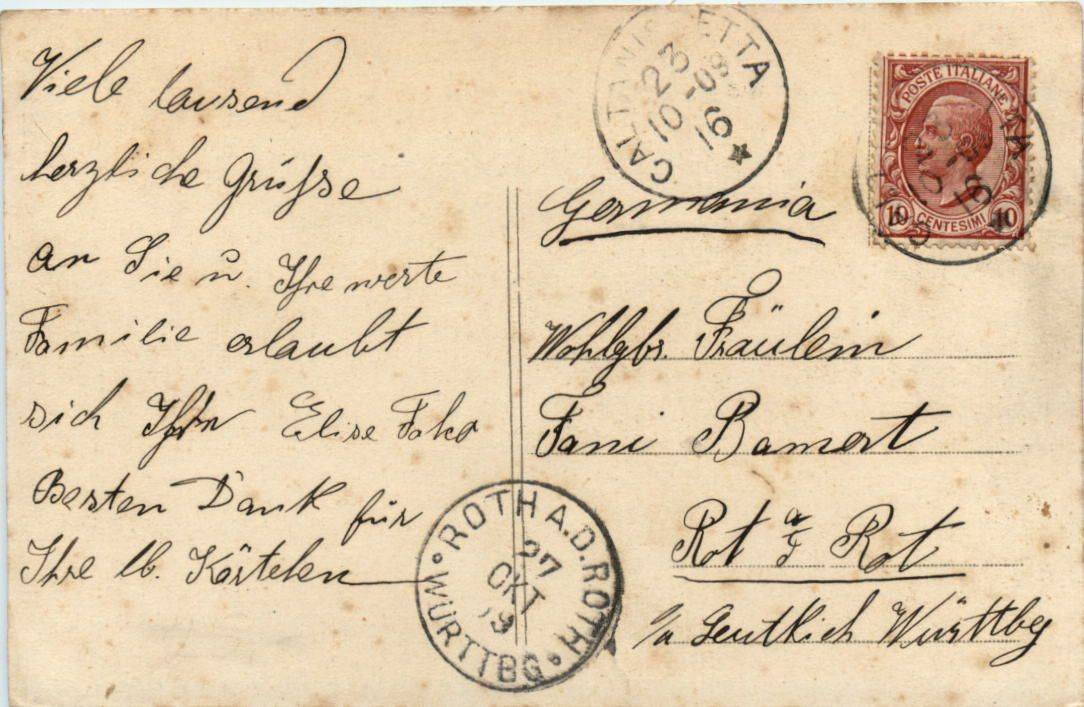 Viele tausend
herzliche Grüße
an Sie u. Ihre werte
Familie erlaubt
sich Ihre Elise
Besten Dank für
Ihre lb. Kärtchen
CALTANISSETTA
23
10-08
16
POSTE ITALIANE
10 CENTESIMI 10
Germania
Wohlgbr. Fräulein
Fani Bamert
Rot a/ Rot
Leutkich Württbg
ROTH A.D. ROTH
27
OKT
WÜRTTBG